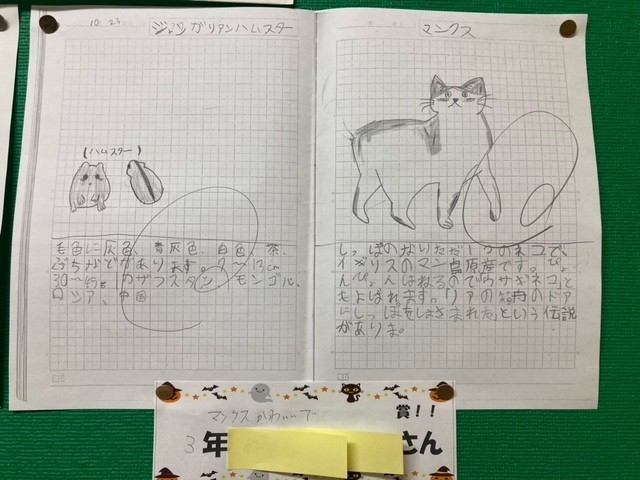 10.23
ジャンガリアンハムスター
(ハムスター)
毛色に灰色、青灰色、白色、茶、
ぶちなどがあります。7～13cm
30～45g カザフスタン、モンゴル、
ロシア、中国
マンクス
しっぽのないただ1つのネコで、
イギリスのマン島原産です。ぴょ
んぴょんはねるので「ウサギネコ」と
もよばれます。ノアの箱舟のドア
にしっぽをはさまれた」という伝説
がありま。
賞！！
マンクスかわいいで
3年
さん